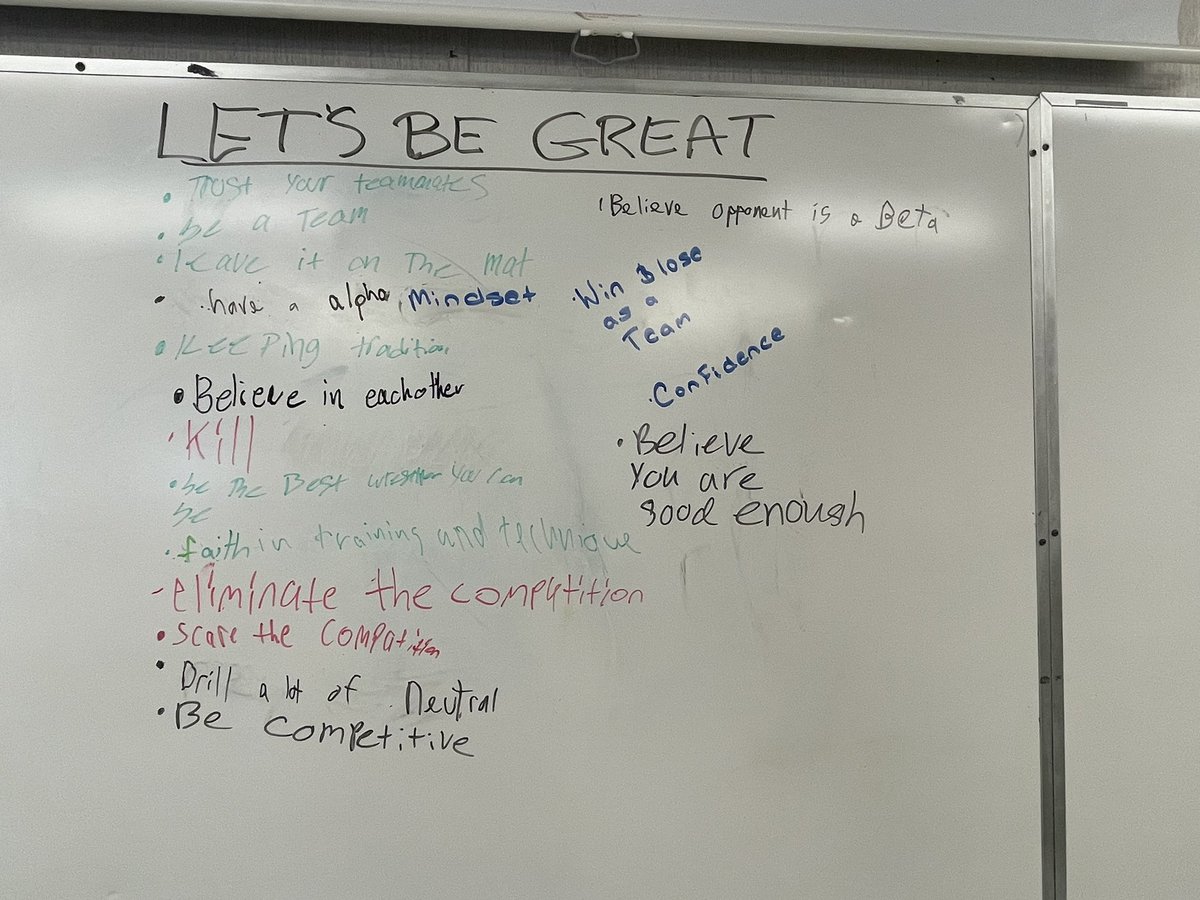 LET'S BE GREAT
• Trust your teammates
• be a Team
• leave it on The mat
• .have a alpha Mindset
• KeePing tradition
• Believe in eachother
• Kill
• be The Best wrestler You can
be
• faith in training and technique
- eliminate the computition
• scare the Compatition
• Drill a lot of neutral
• Be competitive
Believe opponent is a Beta
• Win & lose
as a
Team
• Confidence
• Believe
You are
good enough